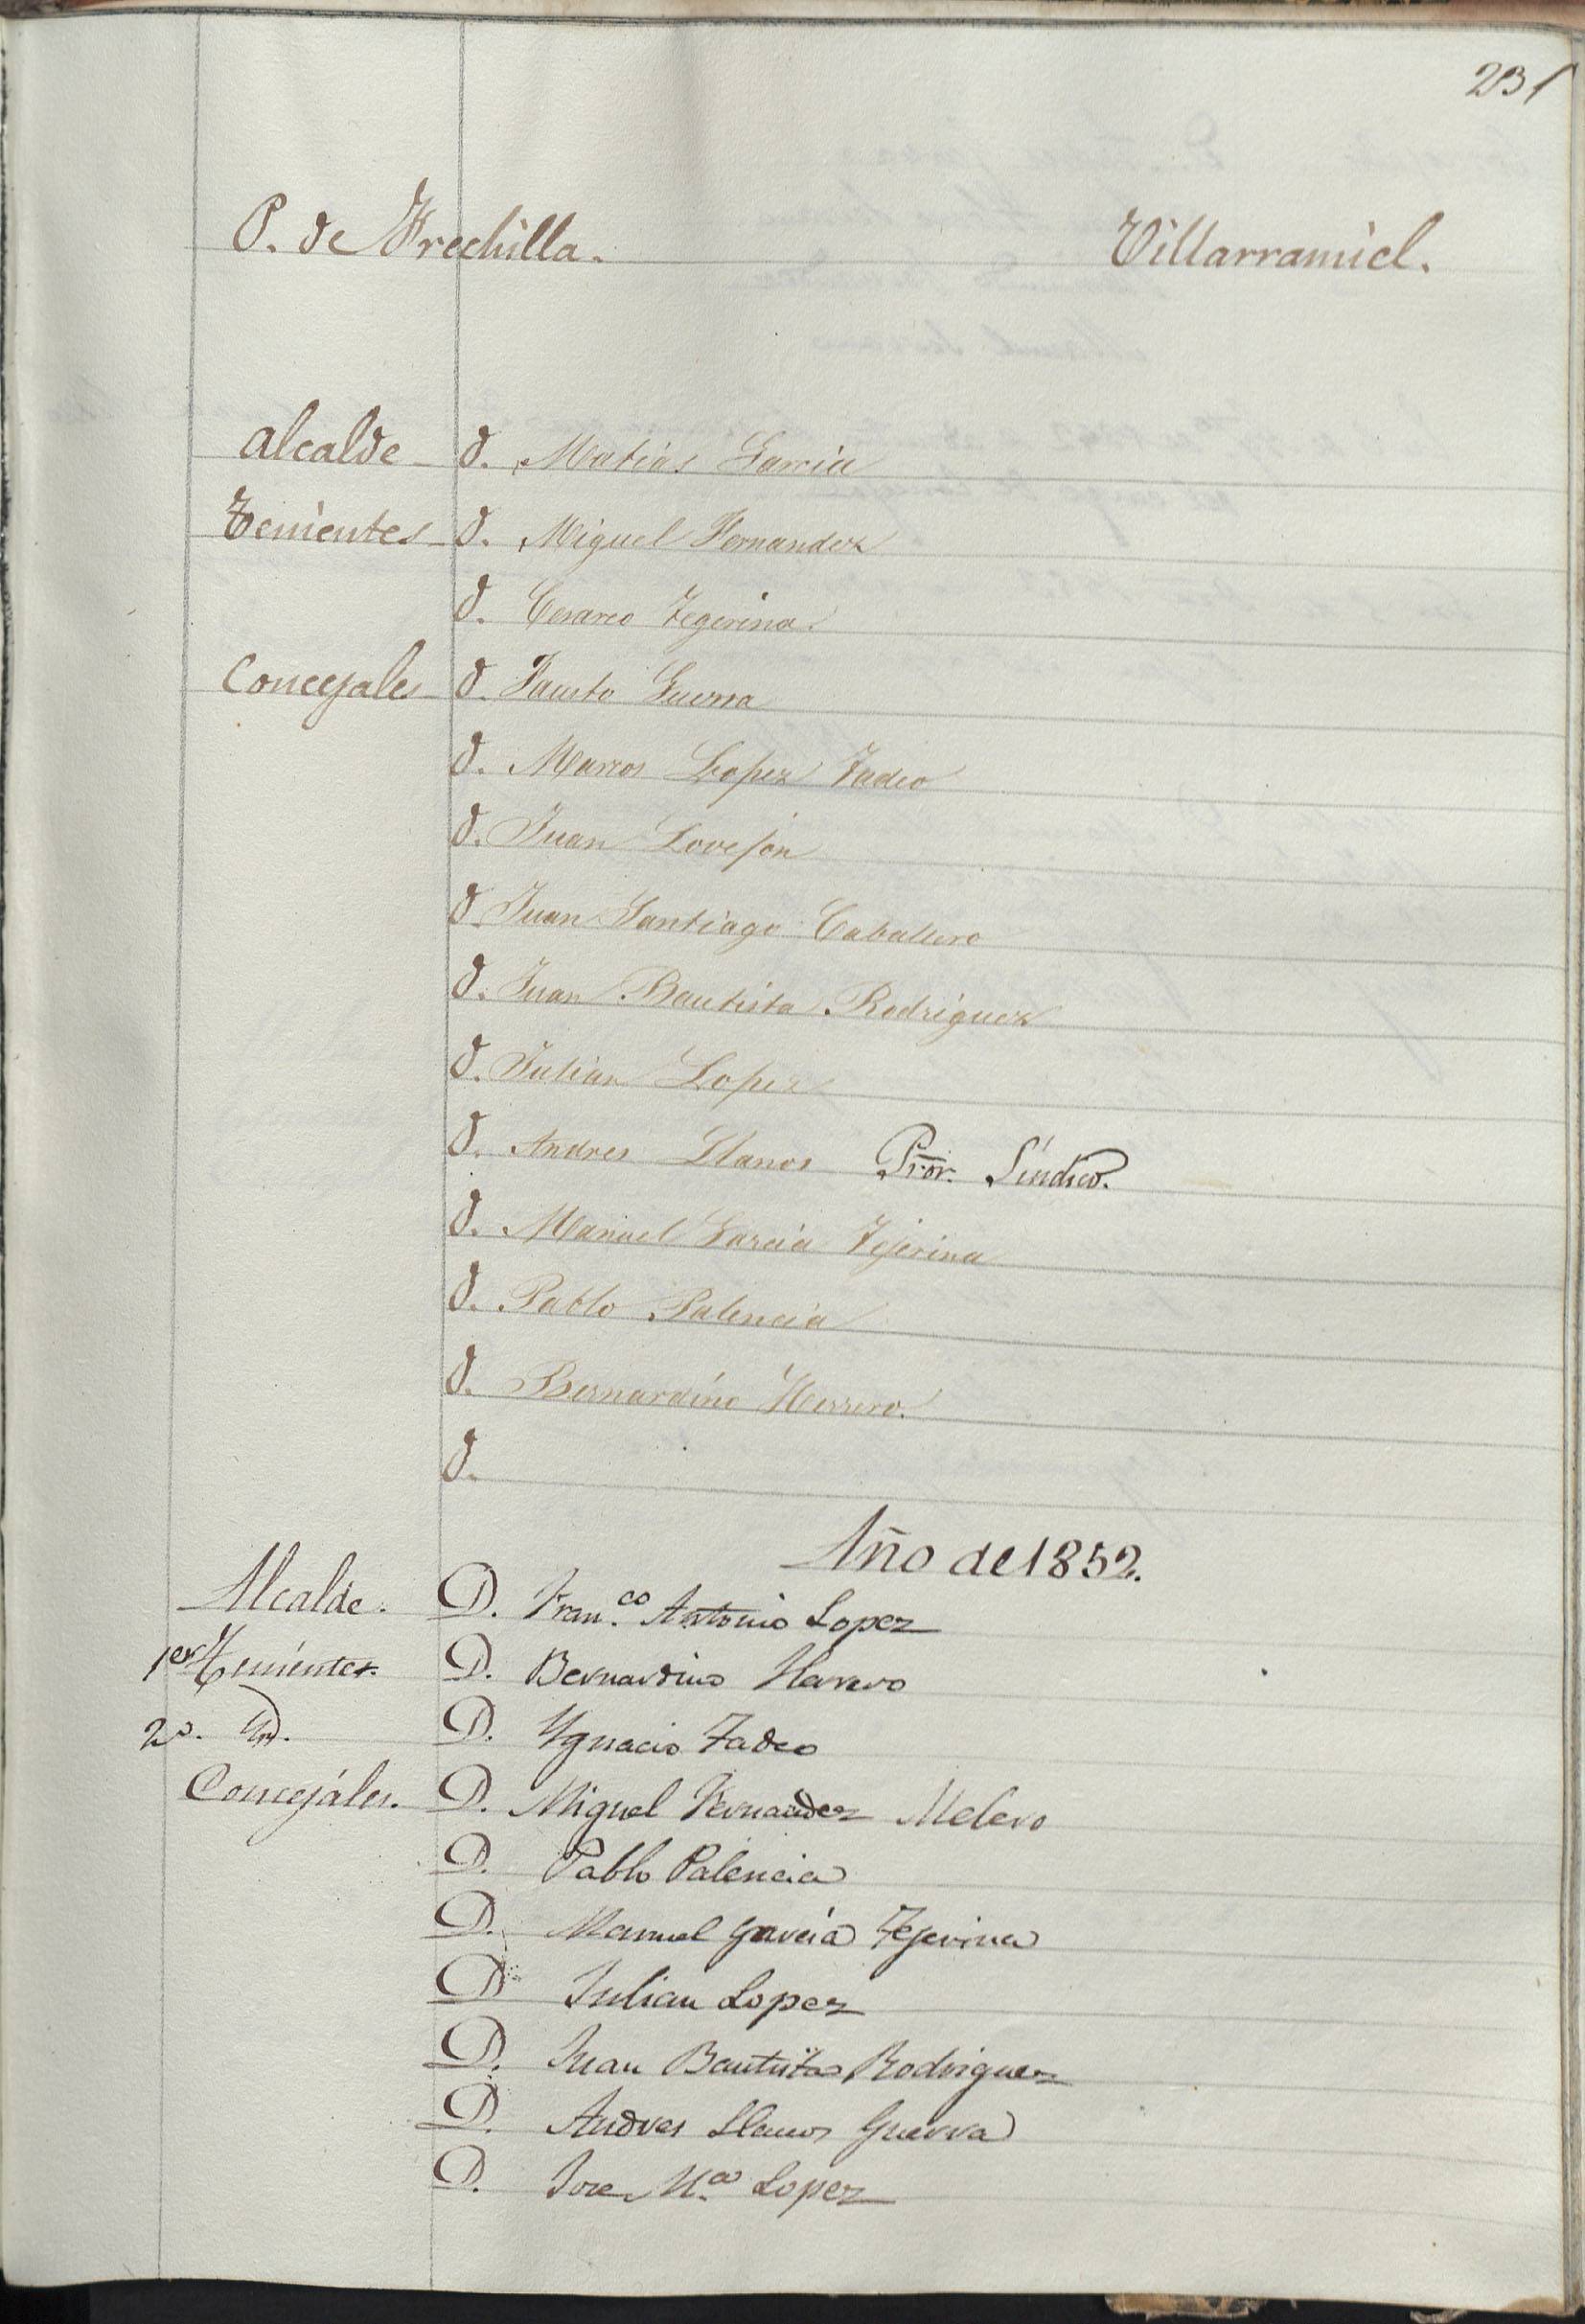 231
P. de Frechilla. Villarramiel.
Alcalde D. Matias Garcia
Tenientes D. Miguel Fernandez
D. Cesareo Tegerina.
Concejales D. Fausto Guerra
D. Marcos Lopez Tadeo
D. Juan Lovejon
D. Juan Santiago Caballero
D. Juan Bautista Rodriguez
D. Julian Lopez
D. Andres Llanos Pror. Síndico.
D. Manuel Garcia Tejerina
D. Pablo Palencia
D. Bernardino Herrero.
D.
Año de 1852.
Alcalde. D. Fran.co Antonio Lopez
1er Tenientes. D. Bernardino Herrero
2o. Id. D. Ygnacio Tadeo
Concejáles. D. Miguel Fernandez Melero
D. Pablo Palencia
D. Manuel Garcia Tejerina
D. Julian Lopez
D. Juan Bautista Rodriguez
D. Andres Llanos Guerra
D. Jose M.a Lopez